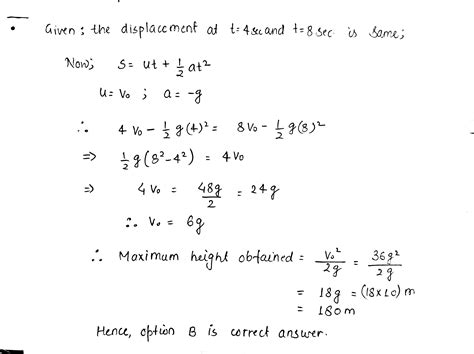 • Given : the displacement at t=4sec and t=8sec is same;
Now; s = ut + 1/2 at²
u= V₀ ; a = -g
∴ 4 V₀ - 1/2 g(4)² = 8V₀ - 1/2 g(8)²
⇒ 1/2 g(8²-4²) = 4V₀
⇒ 4V₀ = 48g/2 = 24g
∴ V₀ = 6g
∴ Maximum height obtained = V₀²/2g = 36g²/2g
= 18g = (18×10) m
= 180m
Hence, option B is correct answer.